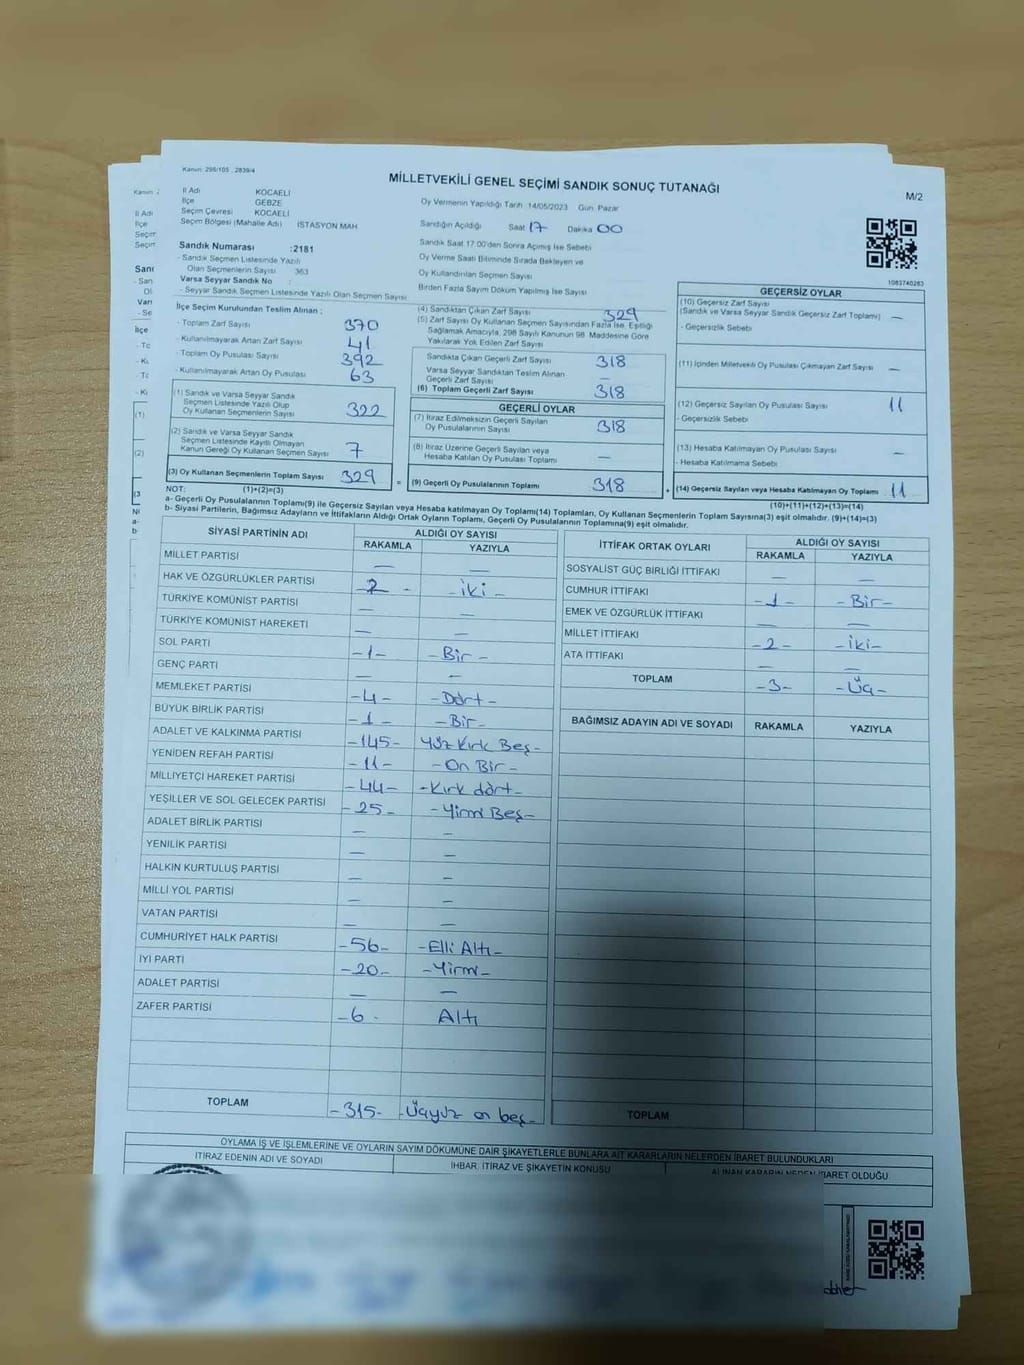 Kanun: 298/105 , 2839/4
MİLLETVEKİLİ GENEL SEÇİMİ SANDIK SONUÇ TUTANAĞI
M/2
İl Adı KOCAELİ
İlçe GEBZE
Seçim Çevresi KOCAELİ
Seçim Bölgesi (Mahalle Adı) İSTASYON MAH
Sandık Numarası :2181
- Sandık Seçmen Listesinde Yazılı
Olan Seçmenlerin Sayısı 363
Varsa Seyyar Sandık No :
- Seyyar Sandık Seçmen Listesinde Yazılı Olan Seçmen Sayısı
Oy Vermenin Yapıldığı Tarih 14/05/2023 Gün Pazar
Sandığın Açıldığı Saat 17 Dakika 00
Sandık Saat 17.00'den Sonra Açılmış İse Sebebi
Oy Verme Saati Bitiminde Sırada Bekleyen ve
Oy Kullandırılan Seçmen Sayısı
Birden Fazla Sayım Döküm Yapılmış İse Sayısı
1083740263
İlçe Seçim Kurulundan Teslim Alınan ;
- Toplam Zarf Sayısı 370
- Kullanılmayarak Artan Zarf Sayısı 41
- Toplam Oy Pusulası Sayısı 392
- Kullanılmayarak Artan Oy Pusulası 63
(1) Sandık ve Varsa Seyyar Sandık
Seçmen Listesinde Yazılı Olup
Oy Kullanan Seçmenlerin Sayısı 322
(2) Sandık ve Varsa Seyyar Sandık
Seçmen Listesinde Kayıtlı Olmayan
Kanun Gereği Oy Kullanan Seçmen Sayısı 7
(3) Oy Kullanan Seçmenlerin Toplam Sayısı 329
(4) Sandıktan Çıkan Zarf Sayısı 329
(5) Zarf Sayısı Oy Kullanan Seçmen Sayısından Fazla İse, Eşitliği
Sağlamak Amacıyla, 298 Sayılı Kanunun 98. Maddesine Göre
Yakılarak Yok Edilen Zarf Sayısı
Sandıkta Çıkan Geçerli Zarf Sayısı 318
Varsa Seyyar Sandıktan Teslim Alınan
Geçerli Zarf Sayısı —
(6) Toplam Geçerli Zarf Sayısı 318
GEÇERLİ OYLAR
(7) İtiraz Edilmeksizin Geçerli Sayılan
Oy Pusulalarının Sayısı 318
(8) İtiraz Üzerine Geçerli Sayılan veya
Hesaba Katılan Oy Pusulası Toplamı —
= (9) Geçerli Oy Pusulalarının Toplamı 318
GEÇERSİZ OYLAR
(10) Geçersiz Zarf Sayısı
(Sandık ve Varsa Seyyar Sandık Geçersiz Zarf Toplamı) —
- Geçersizlik Sebebi
(11) İçinden Milletvekili Oy Pusulası Çıkmayan Zarf Sayısı —
(12) Geçersiz Sayılan Oy Pusulası Sayısı 11
- Geçersizlik Sebebi
(13) Hesaba Katılmayan Oy Pusulası Sayısı —
- Hesaba Katılmama Sebebi
+ (14) Geçersiz Sayılan veya Hesaba Katılmayan Oy Toplamı 11
NOT: (1)+(2)=(3) (10)+(11)+(12)+(13)=(14)
a- Geçerli Oy Pusulalarının Toplamı(9) ile Geçersiz Sayılan veya Hesaba Katılmayan Oy Toplamı(14) Toplamları, Oy Kullanan Seçmenlerin Toplam Sayısına(3) eşit olmalıdır. (9)+(14)=(3)
b- Siyasi Partilerin, Bağımsız Adayların ve İttifakların Aldığı Ortak Oyların Toplamı, Geçerli Oy Pusulalarının Toplamına(9) eşit olmalıdır.
SİYASİ PARTİNİN ADI ALDIĞI OY SAYISI
RAKAMLA YAZIYLA
MİLLET PARTİSİ — —
HAK VE ÖZGÜRLÜKLER PARTİSİ -2- -iki-
TÜRKİYE KOMÜNİST PARTİSİ — —
TÜRKİYE KOMÜNİST HAREKETİ — —
SOL PARTİ -1- -Bir-
GENÇ PARTİ — —
MEMLEKET PARTİSİ -4- -Dört-
BÜYÜK BİRLİK PARTİSİ -1- -Bir-
ADALET VE KALKINMA PARTİSİ -145- Yüz Kırk Beş-
YENİDEN REFAH PARTİSİ -11- -On Bir-
MİLLİYETÇİ HAREKET PARTİSİ -44- -Kırk dört-
YEŞİLLER VE SOL GELECEK PARTİSİ -25- -Yirmi Beş-
ADALET BİRLİK PARTİSİ — —
YENİLİK PARTİSİ — —
HALKIN KURTULUŞ PARTİSİ — —
MİLLİ YOL PARTİSİ — —
VATAN PARTİSİ — —
CUMHURİYET HALK PARTİSİ -56- -Elli Altı-
İYİ PARTİ -20- -Yirmi-
ADALET PARTİSİ — —
ZAFER PARTİSİ -6- Altı
TOPLAM -315- -Üçyüz on beş-
İTTİFAK ORTAK OYLARI ALDIĞI OY SAYISI
RAKAMLA YAZIYLA
SOSYALİST GÜÇ BİRLİĞİ İTTİFAKI — —
CUMHUR İTTİFAKI -1- -Bir-
EMEK VE ÖZGÜRLÜK İTTİFAKI — —
MİLLET İTTİFAKI -2- -iki-
ATA İTTİFAKI — —
TOPLAM -3- -Üç-
BAĞIMSIZ ADAYIN ADI VE SOYADI RAKAMLA YAZIYLA
TOPLAM
OYLAMA İŞ VE İŞLEMLERİNE VE OYLARIN SAYIM DÖKÜMÜNE DAİR ŞİKAYETLERLE BUNLARA AİT KARARLARIN NELERDEN İBARET BULUNDUKLARI
İTİRAZ EDENİN ADI VE SOYADI İHBAR, İTİRAZ VE ŞİKAYETİN KONUSU ALINAN KARARIN NEDEN İBARET OLDUĞU